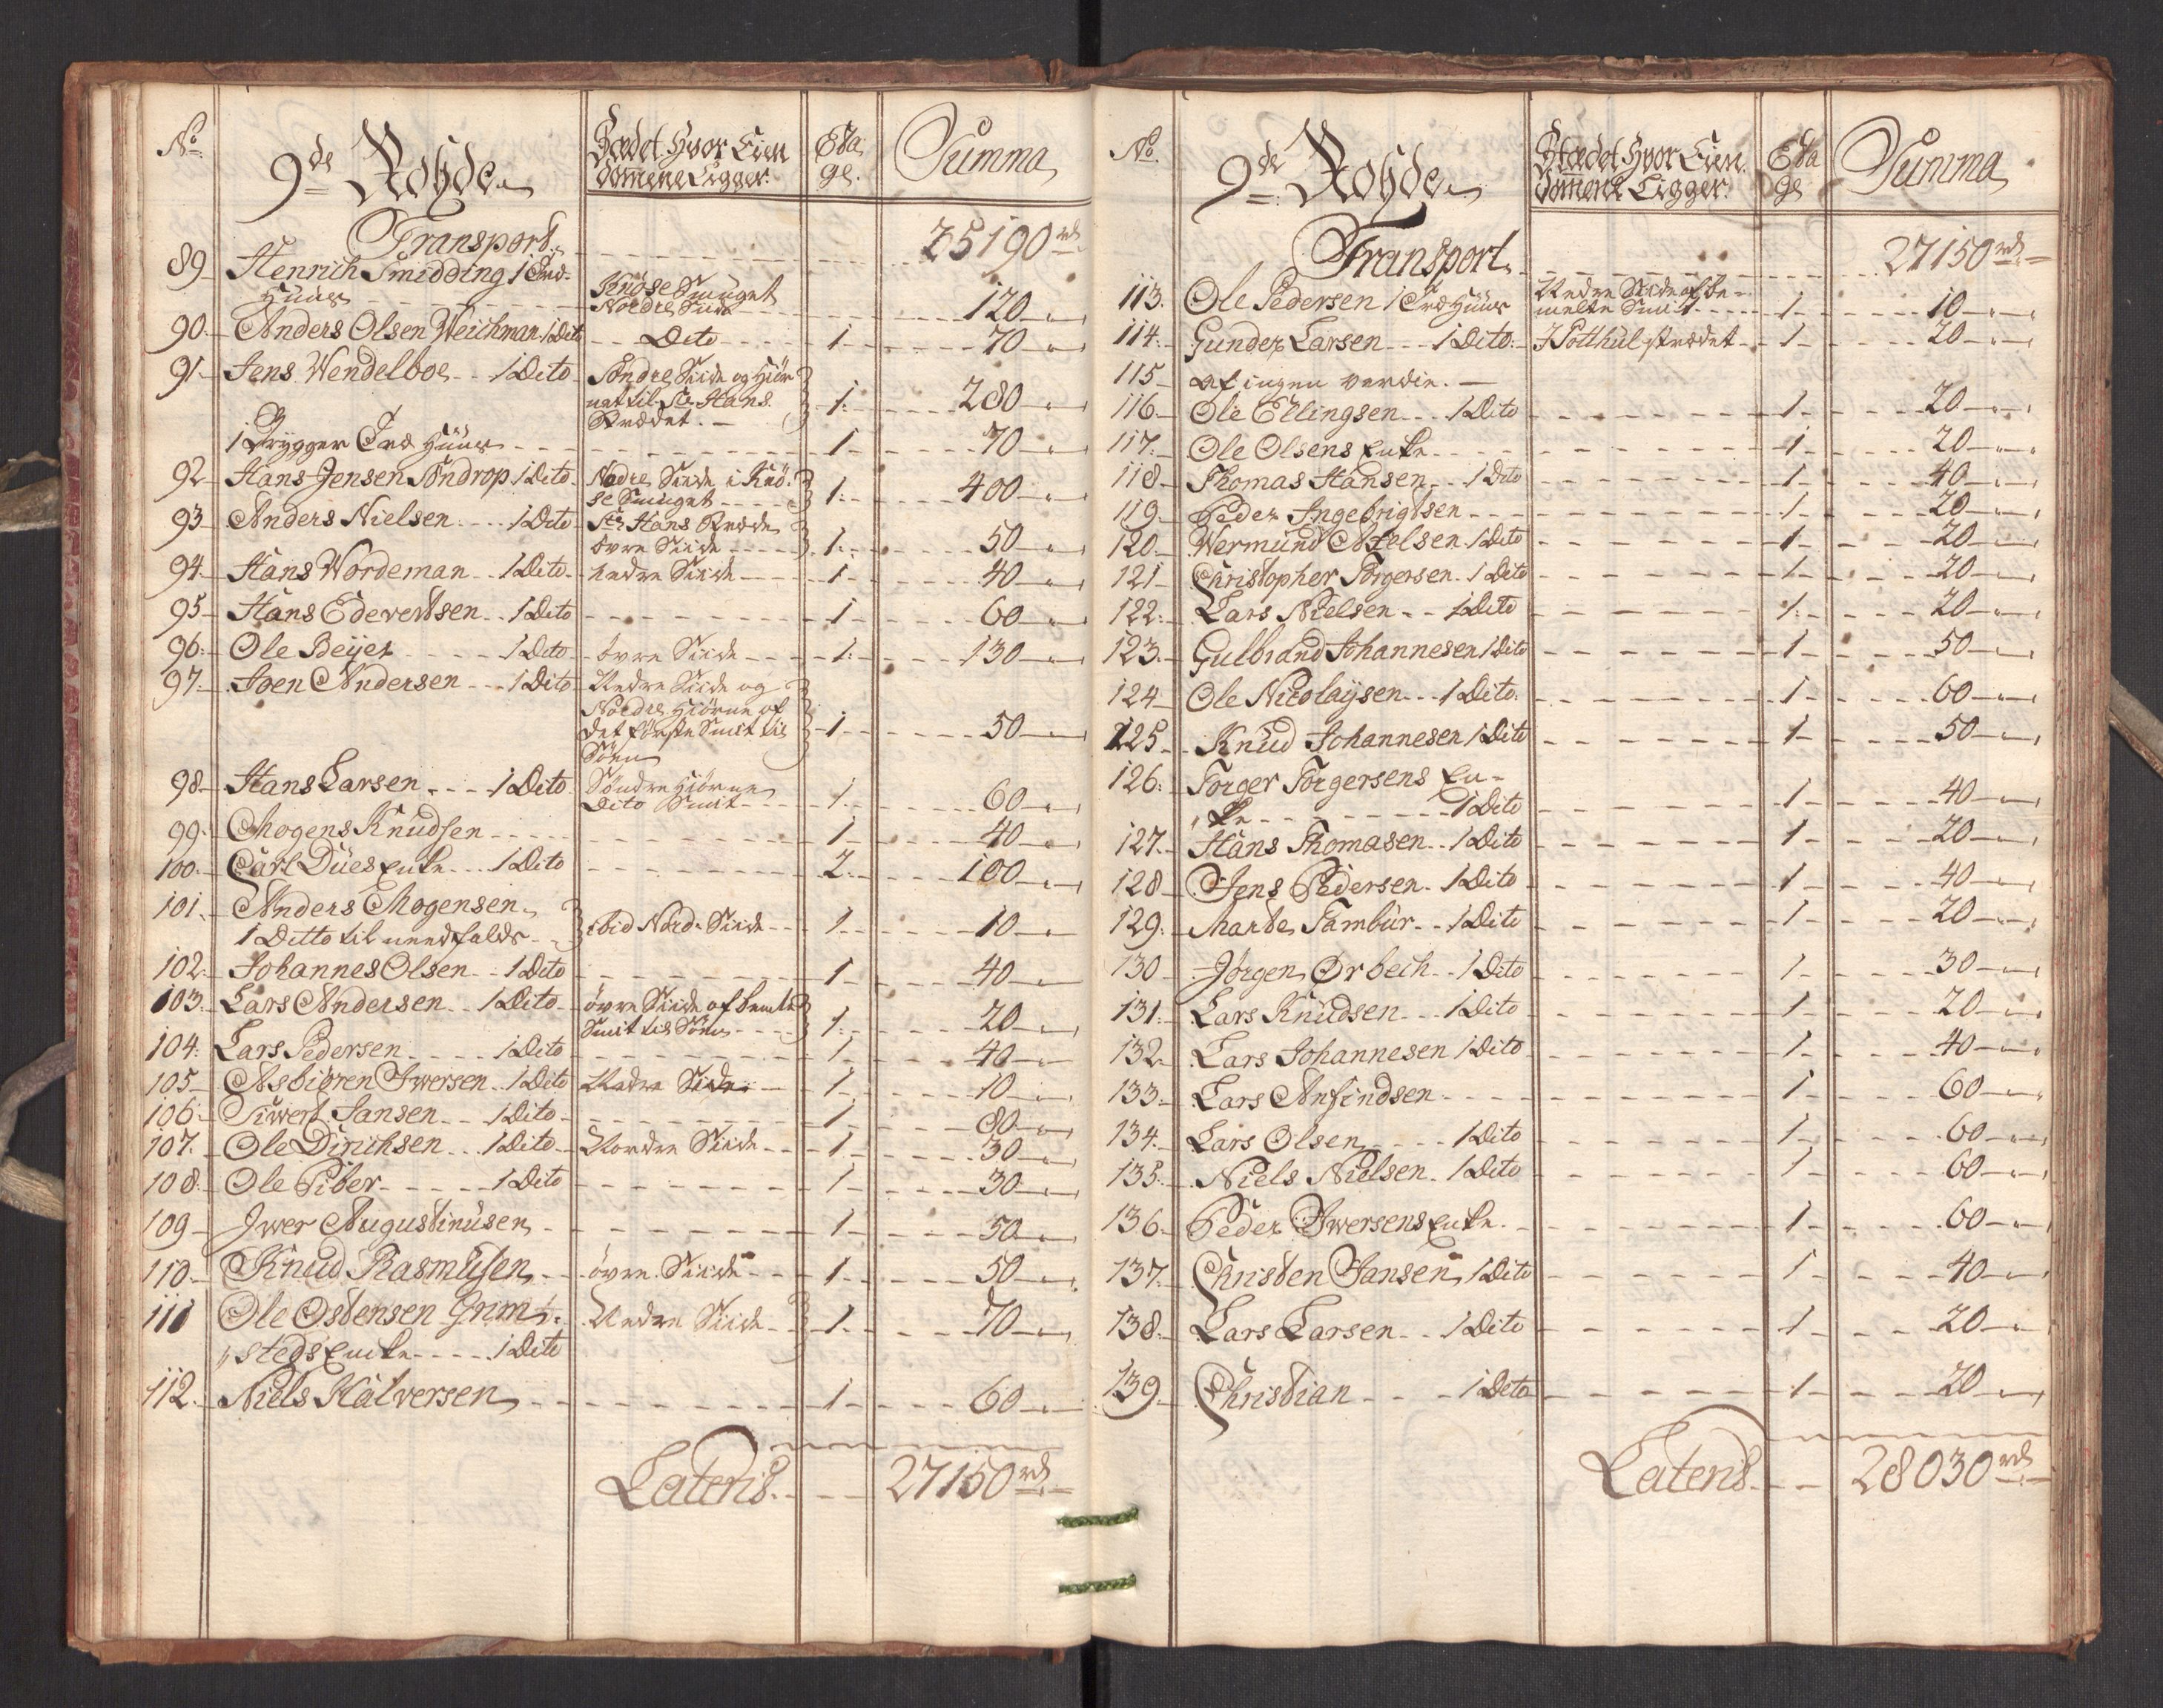 No
9de Rohde
Stædet hvor Eien
domene Ligger.
Eta
ge.
Summa
Transport 25190 rd
89 Henrich Smidding 1 Træ
Huus Knøse Smuget
Nordre Siide 120
90. Anders Olsen Weichman 1 Dito Dito 1 70
91. Jens Wendelboe 1 Dito Söndre Siide og Hiör
net til Ste Hans
Strædet. 1. 280
1 Brygger Træ Huus 1 70
92 Hans Jensen Söndrop 1 Dito Nordre Siide i Knö
se Smuget 1. 400
93 Anders Nielsen 1 Dito Ste Hans Stræde
övre Siide 1. 50
94. Hans Wordeman 1 Dito nedre Siide 1 40
95 Hans Edevertsen 1 Dito 1 60
96. Ole Beijer 1 Dito övre Siide 1. 130
97. Joen Andersen 1 Dito Nedre Siide og
Nordre Hiörne af
det første Smit til
Söen 1 50
98 Hans Larsen 1 Dito Söndre Hiörne
Dito Smit 1. 60
99. Mogens Knudsen 1 40
100. Carl Dües Enke 1 Dito 2. 100
101. Anders Mogensen
1 Ditto til needfalds ibid Nord. Siide 1. 10
102. Johannes Olsen 1 Dito 1 40
103. Lars Andersen 1 Dito övre Siide af bemte
Smit til Söen 1. 20
104. Lars Pedersen 1 Dito 1. 40
105 Asbiören Iwersen 1 Dito Nedre Side 1 10
106. Siwert Jansen 1 Dito 1 80
107. Ole Dirichsen 1 Dito Nordre Siide 1 30
108. Ole Piber 1 Dito 1 30
109 Iwer Augustinusen 1 50
110. Knud Rasmusen övre Siide 1 50
111 Ole Ostensen Grim
steds Enke 1 Dito Nedre Siide 1 70
112. Niels Halversen 1 60
Lateris 27150 rd
No.
9de Rohde
Stædet hvor Eien
domene Ligger.
Eta
ge
Summa
Transport 27150 rd
113. Ole Pedersen 1 Træ Huus Nedre Side af be
melte Smit 1 10
114. Gunder Larsen 1 Dito. I Potthul strædet 1 20
115 af ingen værdie.
116 Ole Ellingsen 1 Dito 1 20
117. Ole Olsens Enke 1 20
118 Thomas Hansen 1 Dito 1 40
119 Peder Ingebrigtsen 1 20
120. Wermund Axelsen 1 Dito 1 20
121 Christopher Torgersen 1 Dito 1 20
122. Lars Nielsen 1 Dito 1. 20
123. Gulbrand Johannesen 1 Dito 1 50
124 Ole Nicolaijsen 1 Dito. 1 60
125. Knud Johannesen 1 Dito 1 50
126. Torger Torgersens En-
ke 1 Dito 1 40
127. Hans Thomasen 1 Dito 1 20
128 Jens Pedersen 1 Dito 1 40
129. Marte Tambur 1 Dito 1 20
130 Jörgen Örbech 1 Dito 1 30
131. Lars Knudsen 1 Dito 1 20
132 Lars Johannesen 1 Dito 1 40
133. Lars Anfindsen 1 60
134. Lars Olsen 1 Dito 1 60
135. Niels Nielsen 1 Dito 1 60
136. Peder Iwersens Enke 1 60
137. Christen Jansen 1 Dito 1 40
138. Lars Larsen 1 Dito 1 20
139 Christian 1 Dito 1 20
Lateris 28030 rd